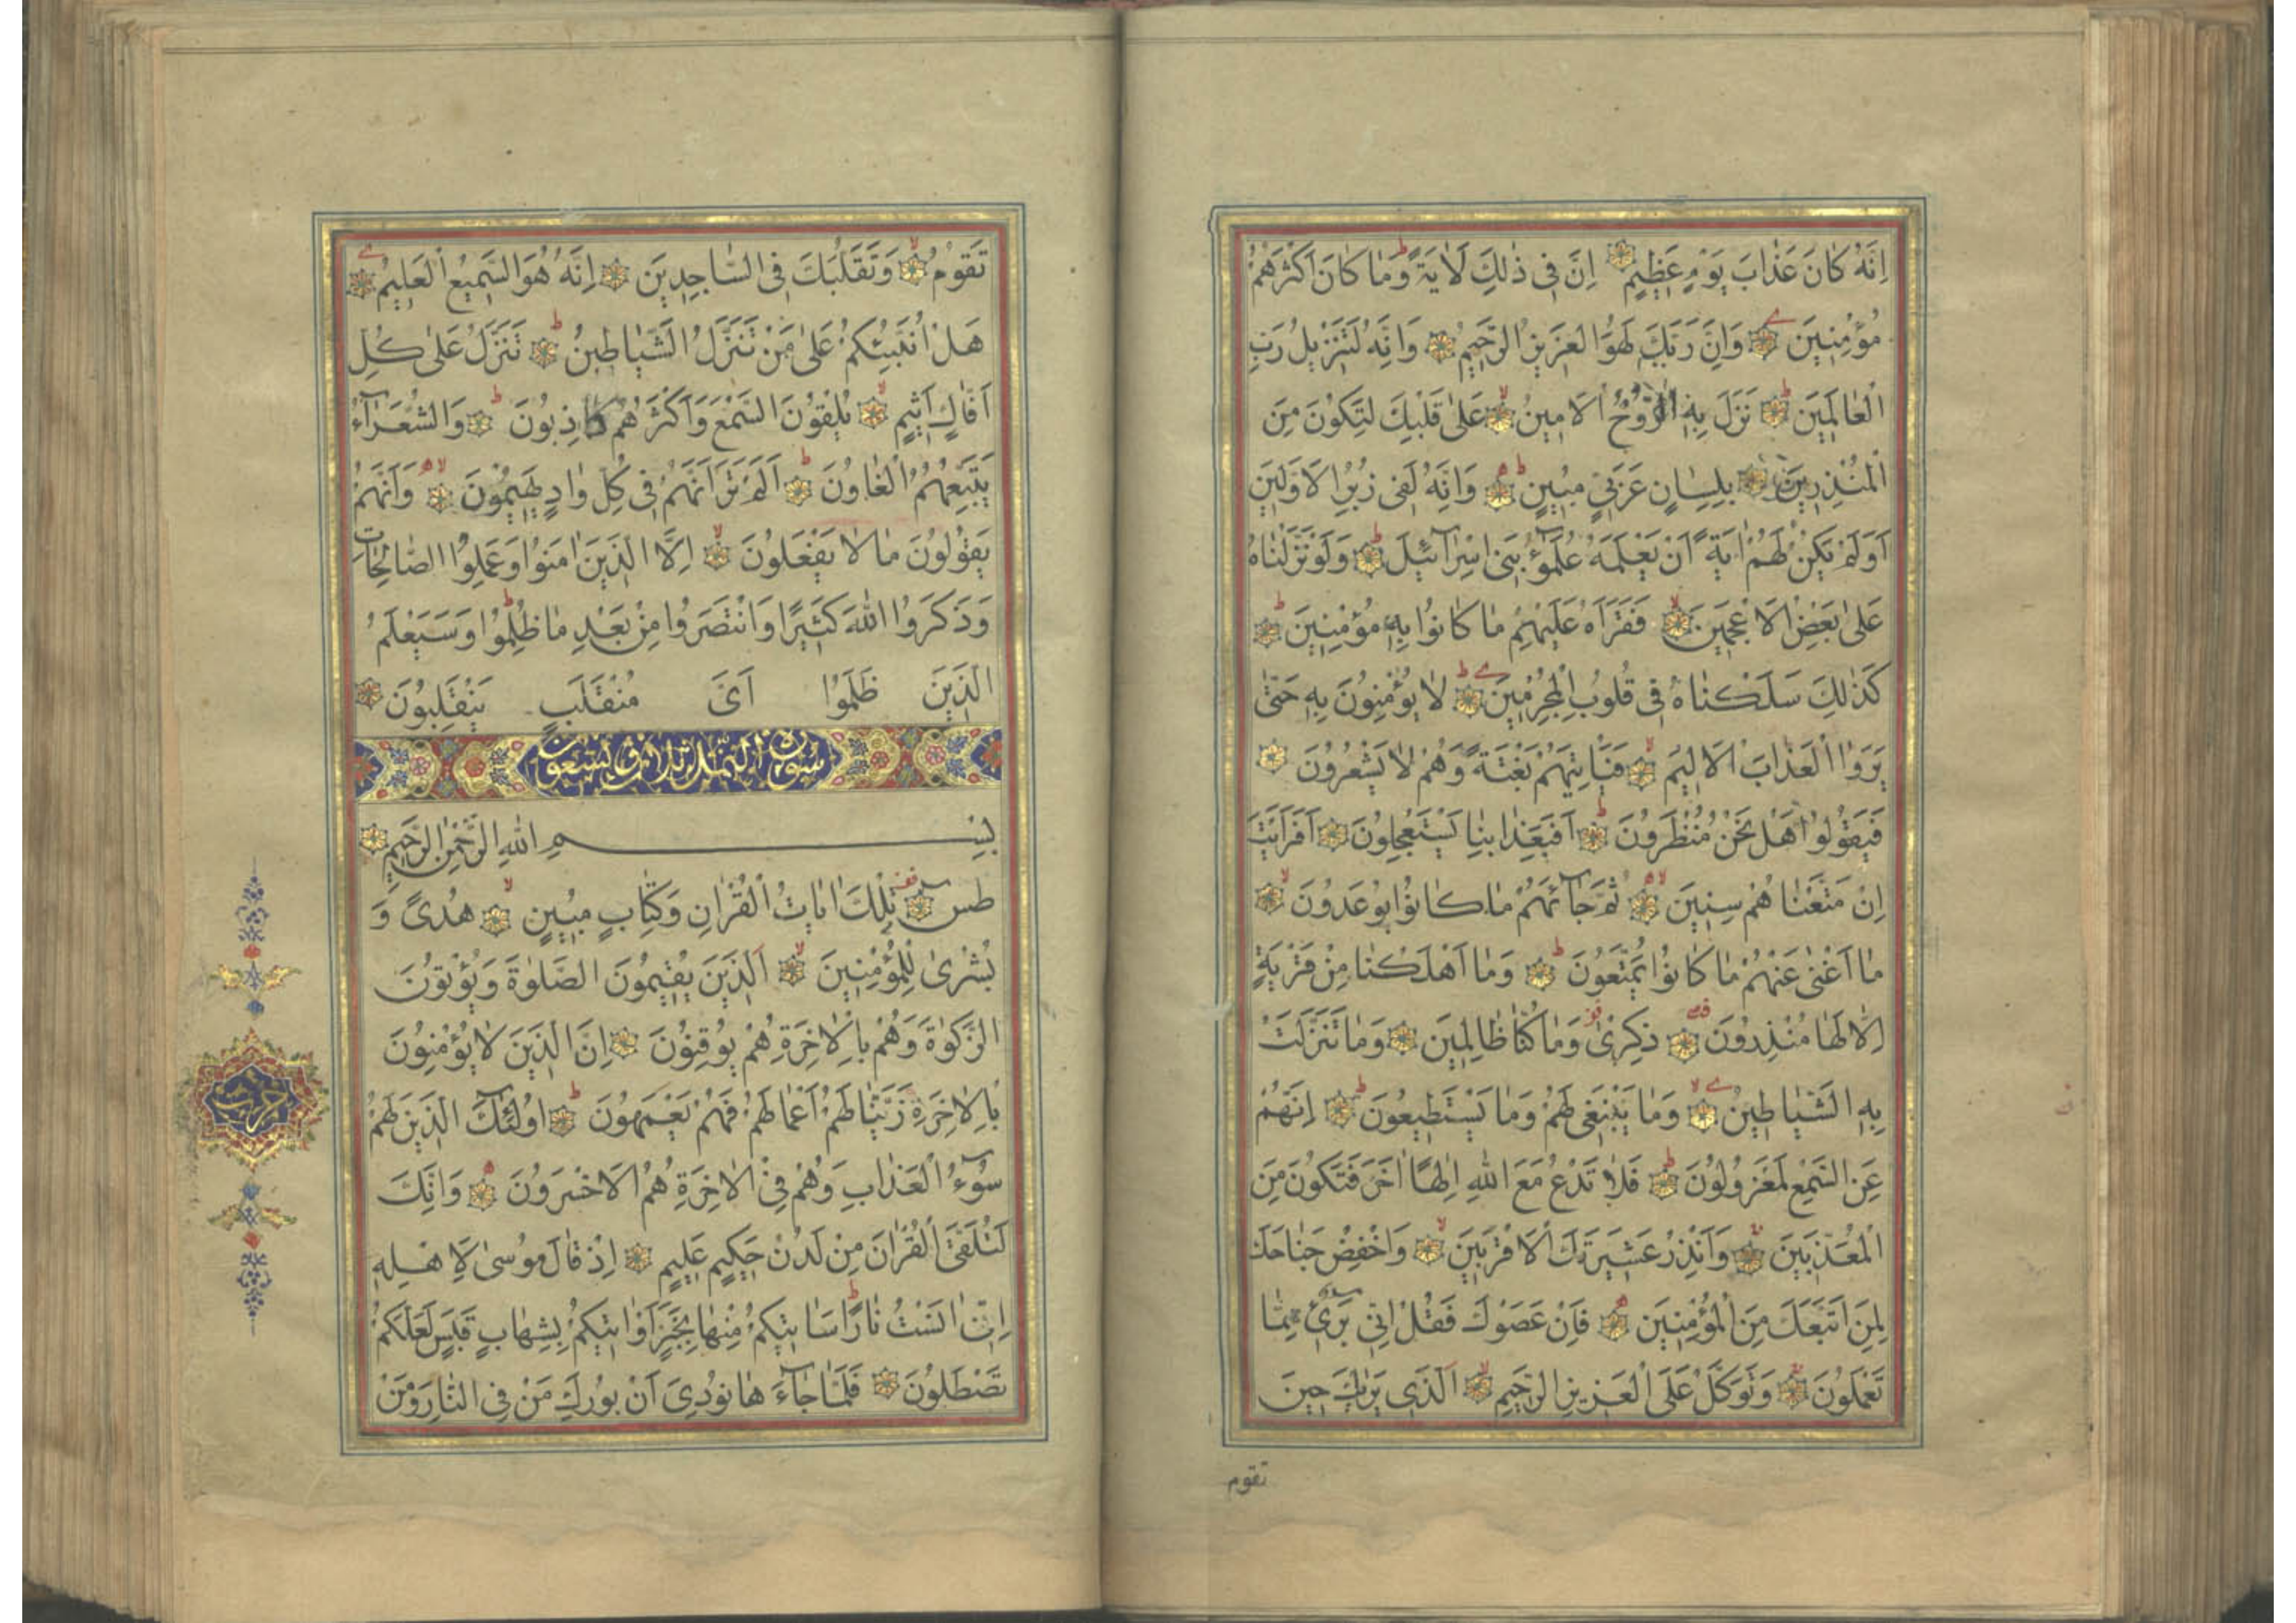 اِنَّهُ كَانَ عَذَابَ يَوْمٍ عَظِيمٍ اِنَّ فِى ذٰلِكَ لَاٰيَةً وَمَا كَانَ اَكْثَرُهُمْ
مُؤْمِنِينَ وَاِنَّ رَبَّكَ لَهُوَ الْعَزِيزُ الرَّحِيمُ وَاِنَّهُ لَتَنْزِيلُ رَبِّ
الْعَالَمِينَ نَزَلَ بِهِ الرُّوحُ الْاَمِينُ عَلٰى قَلْبِكَ لِتَكُونَ مِنَ
الْمُنْذِرِينَ بِلِسَانٍ عَرَبِىٍّ مُبِينٍ وَاِنَّهُ لَفِى زُبُرِ الْاَوَّلِينَ
اَوَلَمْ يَكُنْ لَهُمْ اٰيَةً اَنْ يَعْلَمَهُ عُلَمٰٓؤُ بَنِى اِسْرَآئِيلَ وَلَوْ نَزَّلْنَاهُ
عَلٰى بَعْضِ الْاَعْجَمِينَ فَقَرَاَهُ عَلَيْهِمْ مَا كَانُوا بِهِ مُؤْمِنِينَ
كَذٰلِكَ سَلَكْنَاهُ فِى قُلُوبِ الْمُجْرِمِينَ لَا يُؤْمِنُونَ بِهِ حَتّٰى
يَرَوُا الْعَذَابَ الْاَلِيمَ فَيَاْتِيَهُمْ بَغْتَةً وَهُمْ لَا يَشْعُرُونَ
فَيَقُولُوا هَلْ نَحْنُ مُنْظَرُونَ اَفَبِعَذَابِنَا يَسْتَعْجِلُونَ اَفَرَاَيْتَ
اِنْ مَتَّعْنَاهُمْ سِنِينَ ثُمَّ جَآئَهُمْ مَا كَانُوا يُوعَدُونَ
مَا اَغْنٰى عَنْهُمْ مَا كَانُوا يُمَتَّعُونَ وَمَا اَهْلَكْنَا مِنْ قَرْيَةٍ
اِلَّا لَهَا مُنْذِرُونَ ذِكْرٰى وَمَا كُنَّا ظَالِمِينَ وَمَا تَنَزَّلَتْ
بِهِ الشَّيَاطِينُ وَمَا يَنْبَغِى لَهُمْ وَمَا يَسْتَطِيعُونَ اِنَّهُمْ
عَنِ السَّمْعِ لَمَعْزُولُونَ فَلَا تَدْعُ مَعَ اللّٰهِ اِلٰهًا اٰخَرَ فَتَكُونَ مِنَ
الْمُعَذَّبِينَ وَاَنْذِرْ عَشِيرَتَكَ الْاَقْرَبِينَ وَاخْفِضْ جَنَاحَكَ
لِمَنِ اتَّبَعَكَ مِنَ الْمُؤْمِنِينَ فَاِنْ عَصَوْكَ فَقُلْ اِنِّى بَرِىٓءٌ مِمَّا
تَعْمَلُونَ وَتَوَكَّلْ عَلَى الْعَزِيزِ الرَّحِيمِ اَلَّذِى يَرٰيكَ حِينَ
تقوم
تَقُومُ وَتَقَلُّبَكَ فِى السَّاجِدِينَ اِنَّهُ هُوَ السَّمِيعُ الْعَلِيمُ
هَلْ اُنَبِّئُكُمْ عَلٰى مَنْ تَنَزَّلُ الشَّيَاطِينُ تَنَزَّلُ عَلٰى كُلِّ
اَفَّاكٍ اَثِيمٍ يُلْقُونَ السَّمْعَ وَاَكْثَرُهُمْ كَاذِبُونَ وَالشُّعَرَآءُ
يَتَّبِعُهُمُ الْغَاوُنَ اَلَمْ تَرَ اَنَّهُمْ فِى كُلِّ وَادٍ يَهِيمُونَ وَاَنَّهُمْ
يَقُولُونَ مَا لَا يَفْعَلُونَ اِلَّا الَّذِينَ اٰمَنُوا وَعَمِلُوا الصَّالِحَاتِ
وَذَكَرُوا اللّٰهَ كَثِيرًا وَانْتَصَرُوا مِنْ بَعْدِ مَا ظُلِمُوا وَسَيَعْلَمُ
الَّذِينَ ظَلَمُوا اَىَّ مُنْقَلَبٍ يَنْقَلِبُونَ
سورة النمل ثلاث وتسعون
بِسْمِ اللّٰهِ الرَّحْمٰنِ الرَّحِيمِ
طٰسٓ تِلْكَ اٰيَاتُ الْقُرْاٰنِ وَكِتَابٍ مُبِينٍ هُدًى وَ
بُشْرٰى لِلْمُؤْمِنِينَ اَلَّذِينَ يُقِيمُونَ الصَّلٰوةَ وَيُؤْتُونَ
الزَّكٰوةَ وَهُمْ بِالْاٰخِرَةِ هُمْ يُوقِنُونَ اِنَّ الَّذِينَ لَا يُؤْمِنُونَ
بِالْاٰخِرَةِ زَيَّنَّا لَهُمْ اَعْمَالَهُمْ فَهُمْ يَعْمَهُونَ اُولٰٓئِكَ الَّذِينَ لَهُمْ
سُوٓءُ الْعَذَابِ وَهُمْ فِى الْاٰخِرَةِ هُمُ الْاَخْسَرُونَ وَاِنَّكَ
لَتُلَقَّى الْقُرْاٰنَ مِنْ لَدُنْ حَكِيمٍ عَلِيمٍ اِذْ قَالَ مُوسٰى لِاَهْلِهِ
اِنِّى اٰنَسْتُ نَارًا سَاٰتِيكُمْ مِنْهَا بِخَبَرٍ اَوْ اٰتِيكُمْ بِشِهَابٍ قَبَسٍ لَعَلَّكُمْ
تَصْطَلُونَ فَلَمَّا جَآءَهَا نُودِىَ اَنْ بُورِكَ مَنْ فِى النَّارِ وَمَنْ
حزب